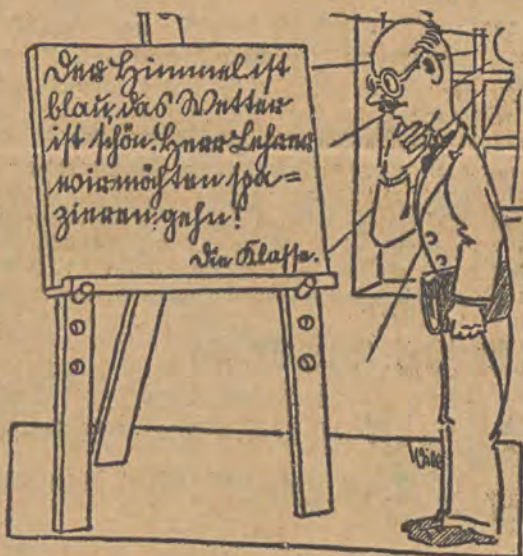 Der Himmel ist
blau, das Wetter
ist schön. Herr Lehrer
wir möchten spa=
zieren gehn!
Die Klasse.